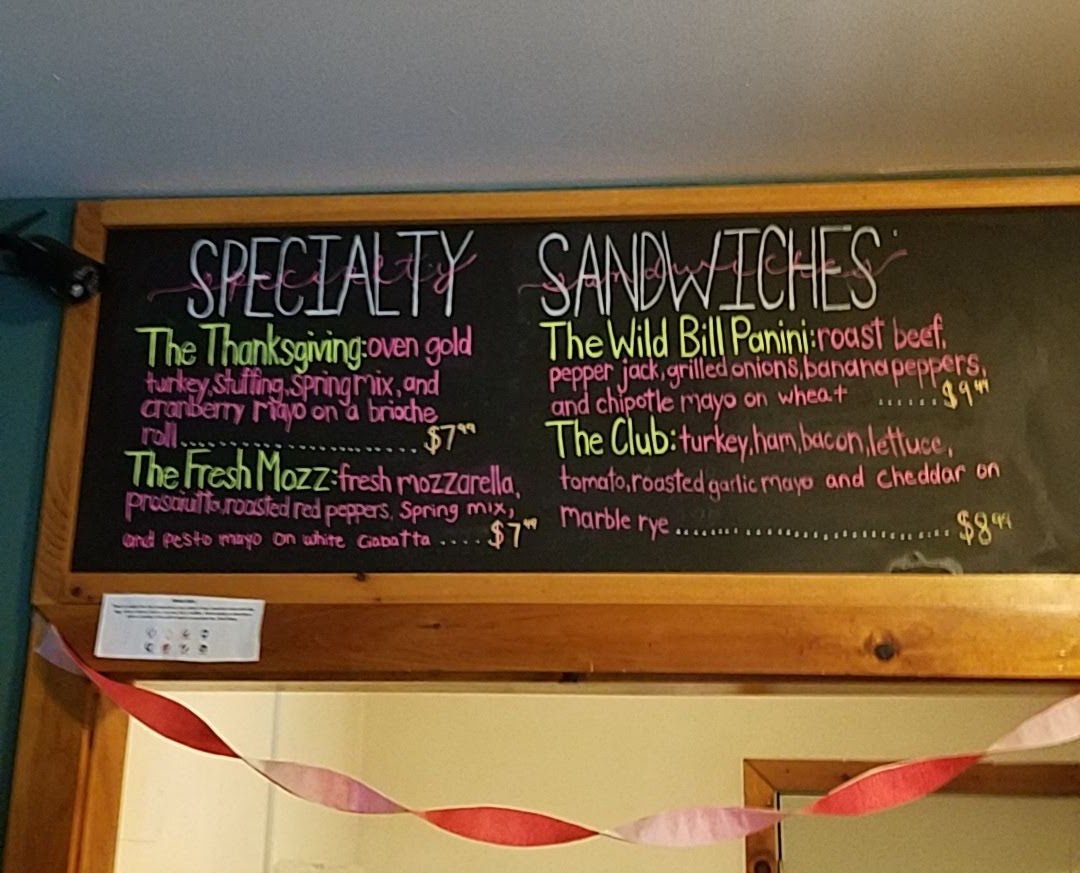 SPECIALTY SANDWICHES
specialty sandwiches
The Thanksgiving: oven gold
turkey, stuffing, spring mix, and
cranberry mayo on a brioche
roll.............................$7⁹⁹
The Fresh Mozz: fresh mozzarella,
prosciutto, roasted red peppers, spring mix,
and pesto mayo on white ciabatta ....$7⁹⁹
The Wild Bill Panini: roast beef,
pepper jack, grilled onions, banana peppers,
and chipotle mayo on wheat ......$9⁹⁹
The Club: turkey, ham, bacon, lettuce,
tomato, roasted garlic mayo and cheddar on
marble rye..............................$8⁹⁹